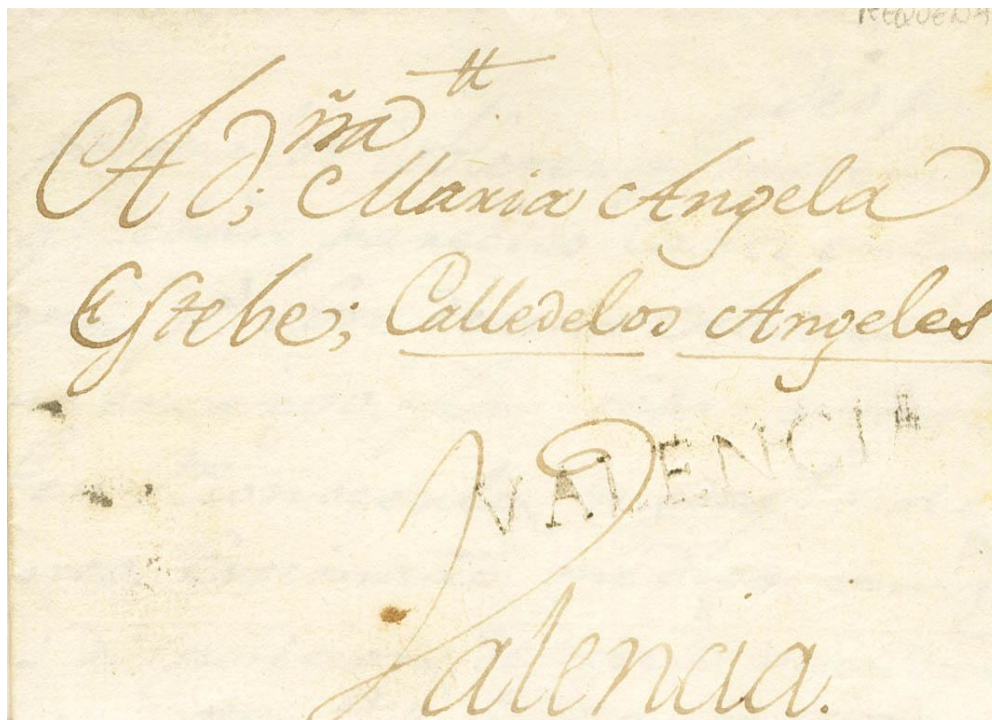 REQUENA
A Dña; Maria Angela
Estebe; Calle de los Angeles
VALENCIA
Valencia.